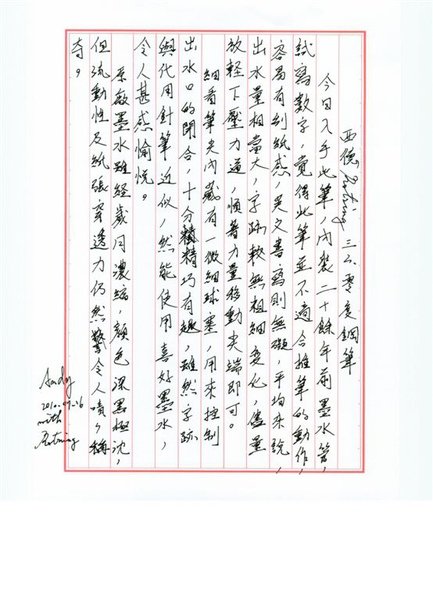 西德 Rotring 三六零度鋼筆
今日入手此筆,內裝二十餘年前墨水管,
試寫數字,覺得此筆並不適合推筆的動作,
容易有刮紙感,英文書寫則無礙,平均來說,
出水量相當大,字跡較無粗細變化,儘量
放輕下壓力道,順著力量移動尖端即可。
細看筆尖內藏有一微細球墨,用來控制
出水口的開合,十分精巧有趣,雖然字跡
與代用針筆近似,然能使用喜好墨水,
令人甚感愉悅。
原廠墨水雖經歲月濃縮,顏色深黑極沈,
但流動性及紙張穿透力仍然驚令人嘖嘖稱
奇。
Andy
2010.07.16
with
Rotring